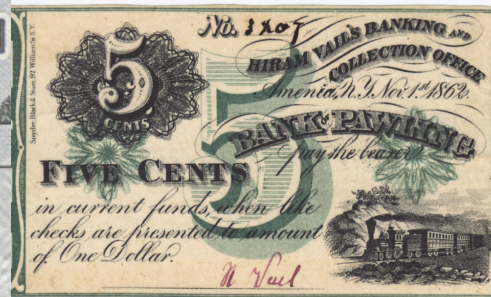 No. 3207
HIRAM VAIL'S BANKING AND
COLLECTION OFFICE
Amenia, N.Y. Nov. 1st 1862.
5
CENTS
Snyder, Black & Sturn, 92 William St. N.Y.
5
BANK OF PAWLING
pay the bearer
FIVE CENTS
in current funds, when like
checks are presented to amount
of One Dollar.
H Vail